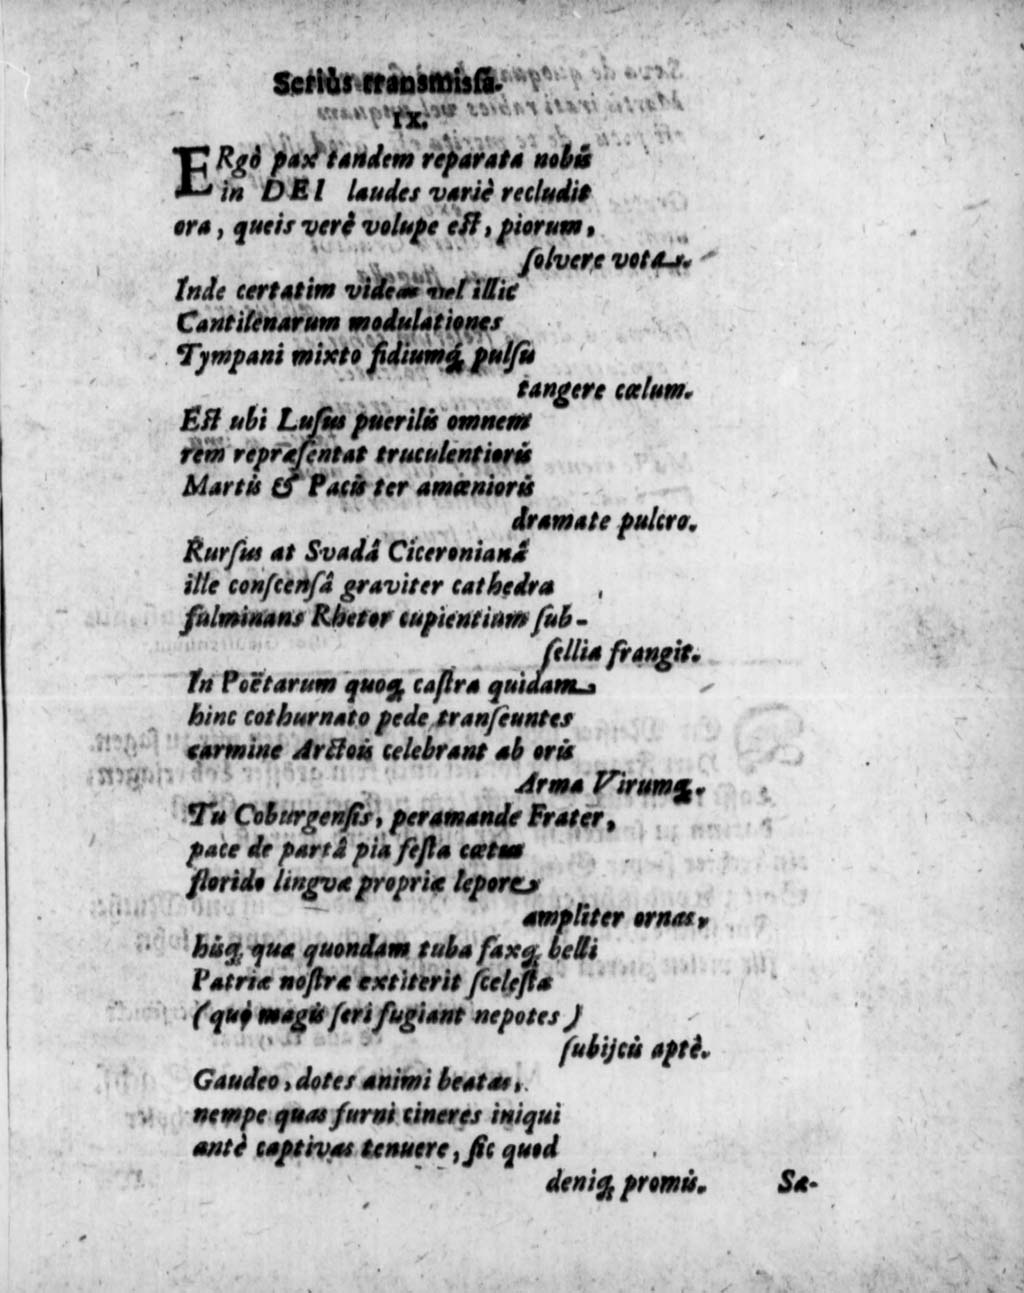 Seriùs transmissa.
IX.
ERgò pax tandem reparata nobis
in DEI laudes variè recludit
ora, queis verè volupe est, piorum,
solvere vota.
Inde certatim videas vel illic
Cantilenarum modulationes
Tympani mixto fidiumq́; pulsu
tangere cœlum.
Est ubi Lusus puerilis omnem
rem repræsentat truculentioris
Martis & Pacis ter amœnioris
dramate pulcro.
Rursus at Svadâ Ciceronianâ
ille conscensâ graviter cathedra
fulminans Rhetor cupientium sub-
sellia frangit.
In Poëtarum quoq; castra quidam
hinc cothurnato pede transeuntes
carmine Arctois celebrant ab oris
Arma Virumq;.
Tu Coburgensis, peramande Frater,
pace de partâ pia festa cœtus
florido linguæ propriæ lepore
ampliter ornas,
hisq; quæ quondam tuba faxq; belli
Patriæ nostræ extiterit scelesta
(quò magis seri fugiant nepotes)
subijcis aptè.
Gaudeo, dotes animi beatas,
nempe quas furni cineres iniqui
antè captivas tenuere, sic quod
deniq; promis.
Sæ-